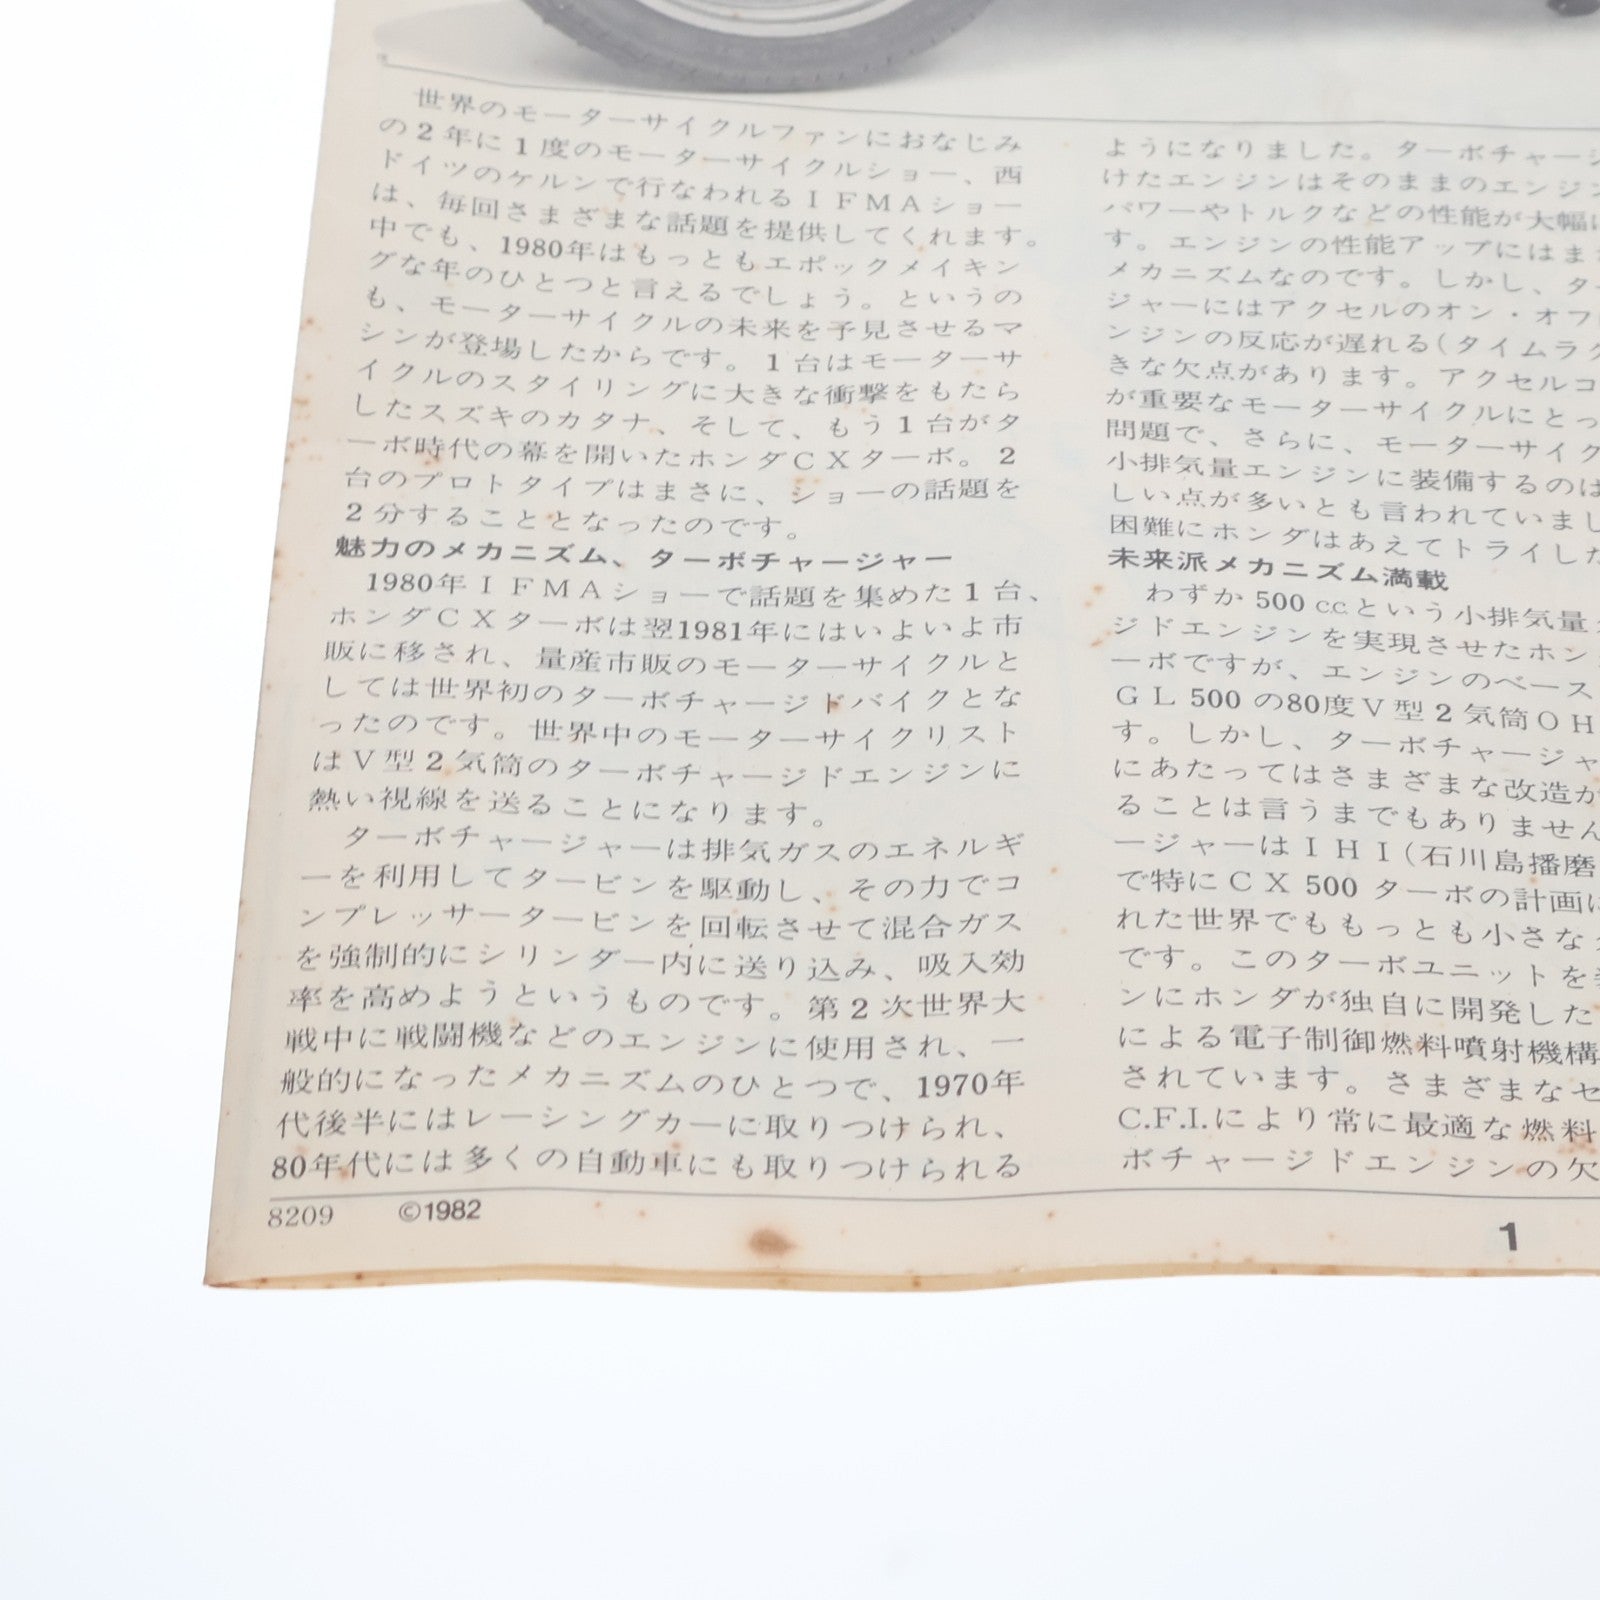 世界のモーターサイクルファンにおなじみ
の２年に１度のモーターサイクルショー、西
ドイツのケルンで行なわれるＩＦＭＡショー
は、毎回さまざまな話題を提供してくれます。
中でも、1980年はもっともエポックメイキン
グな年のひとつと言えるでしょう。というの
も、モーターサイクルの未来を予見させるマ
シンが登場したからです。１台はモーターサ
イクルのスタイリングに大きな衝撃をもたら
したスズキのカタナ、そして、もう１台がタ
ーボ時代の幕を開いたホンダＣＸターボ。２
台のプロトタイプはまさに、ショーの話題を
２分することとなったのです。
魅力のメカニズム、ターボチャージャー
1980年ＩＦＭＡショーで話題を集めた１台、
ホンダＣＸターボは翌1981年にはいよいよ市
販に移され、量産市販のモーターサイクルと
しては世界初のターボチャージドバイクとな
ったのです。世界中のモーターサイクリスト
はＶ型２気筒のターボチャージドエンジンに
熱い視線を送ることになります。
ターボチャージャーは排気ガスのエネルギ
ーを利用してタービンを駆動し、その力でコ
ンプレッサータービンを回転させて混合ガス
を強制的にシリンダー内に送り込み、吸入効
率を高めようというものです。第２次世界大
戦中に戦闘機などのエンジンに使用され、一
般的になったメカニズムのひとつで、1970年
代後半にはレーシングカーに取りつけられ、
80年代には多くの自動車にも取りつけられる
ようになりました。ターボチャージ
けたエンジンはそのままのエンジン
パワーやトルクなどの性能が大幅に
す。エンジンの性能アップにはま
メカニズムなのです。しかし、ター
ジャーにはアクセルのオン・オフ
ンジンの反応が遅れる（タイムラグ
きな欠点があります。アクセルコ
が重要なモーターサイクルにとっ
問題で、さらに、モーターサイク
小排気量エンジンに装備するのは
しい点が多いとも言われていまし
困難にホンダはあえてトライした
未来派メカニズム満載
わずか 500 ccという小排気量
ジドエンジンを実現させたホン
ーボですが、エンジンのベース
ＧＬ 500 の80度Ｖ型２気筒ＯＨ
す。しかし、ターボチャージャ
にあたってはさまざまな改造が
ることは言うまでもありません
ージャーはＩＨＩ（石川島播磨
で特にＣＸ 500 ターボの計画に
れた世界でももっとも小さな
です。このターボユニットを
ンにホンダが独自に開発した
による電子制御燃料噴射機構
されています。さまざまなセ
C.F.I.により常に最適な燃料
ボチャージドエンジンの欠
8209 ©1982
1